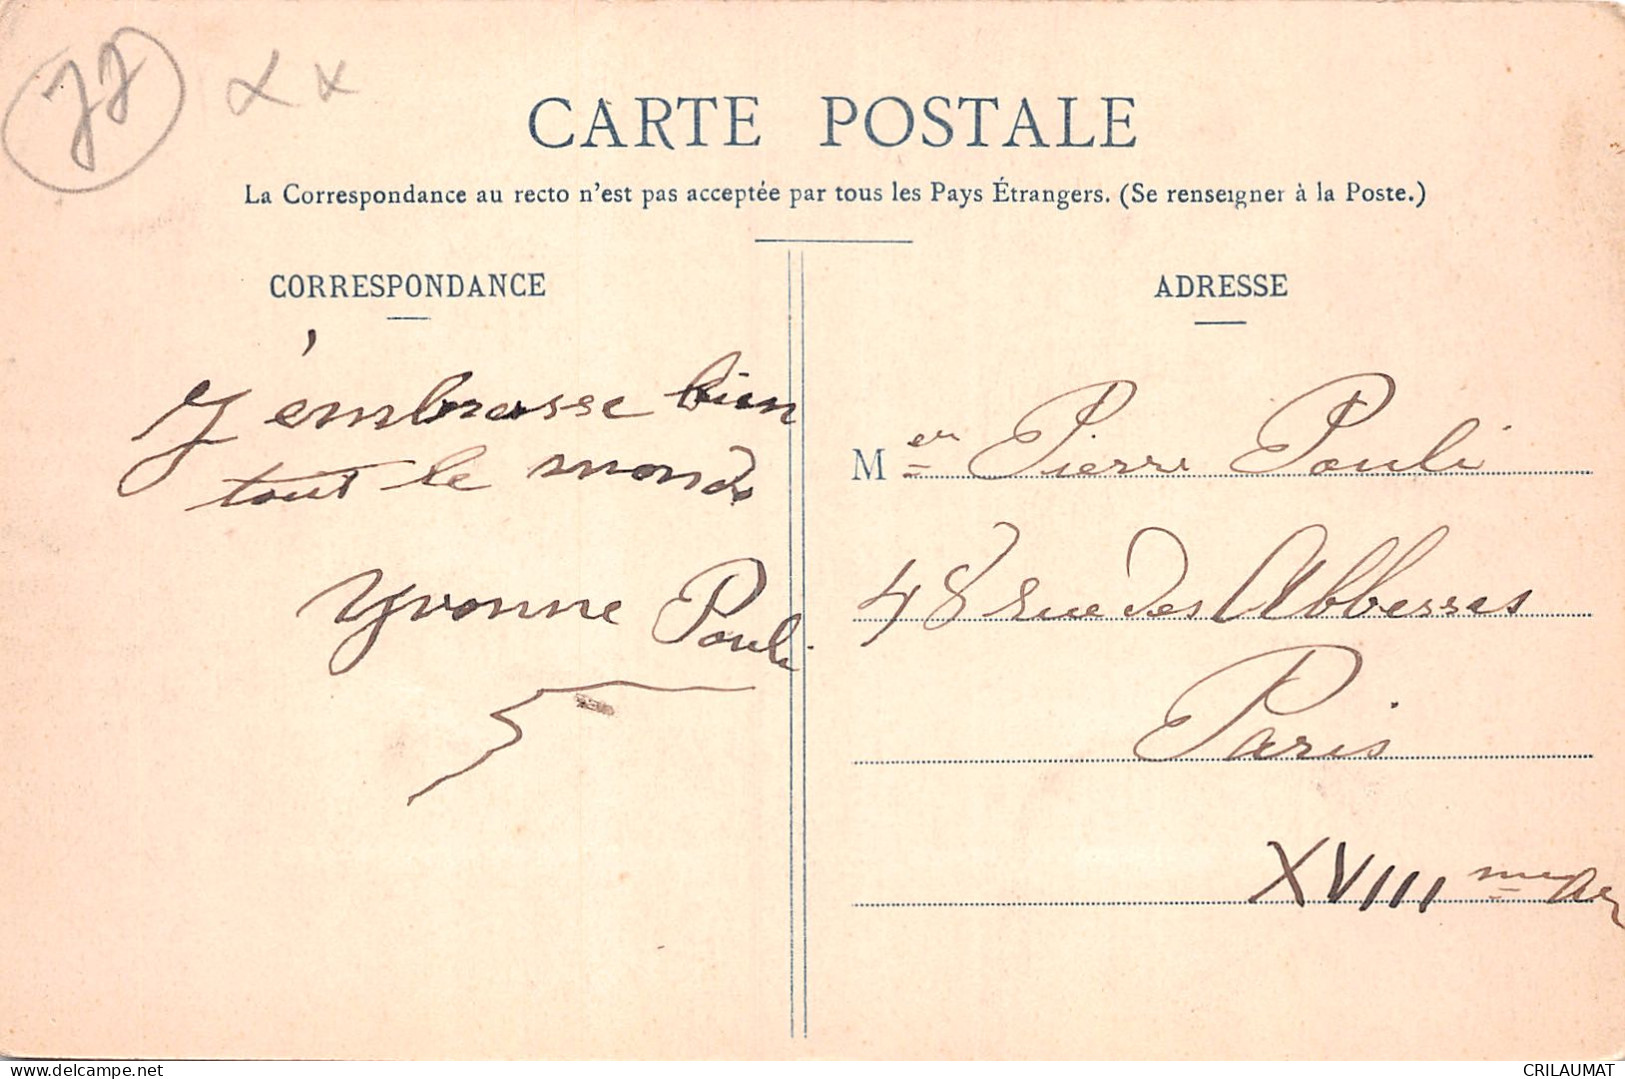 77
CARTE POSTALE
La Correspondance au recto n'est pas acceptée par tous les Pays Étrangers. (Se renseigner à la Poste.)
CORRESPONDANCE
J'embrasse bien
tout le monde
Yvonne Pouli
ADRESSE
Mer Pierre Pouli
48 rue des Abbesses
Paris
XVIIIme Ar
www.delcampe.net
CRILAUMAT